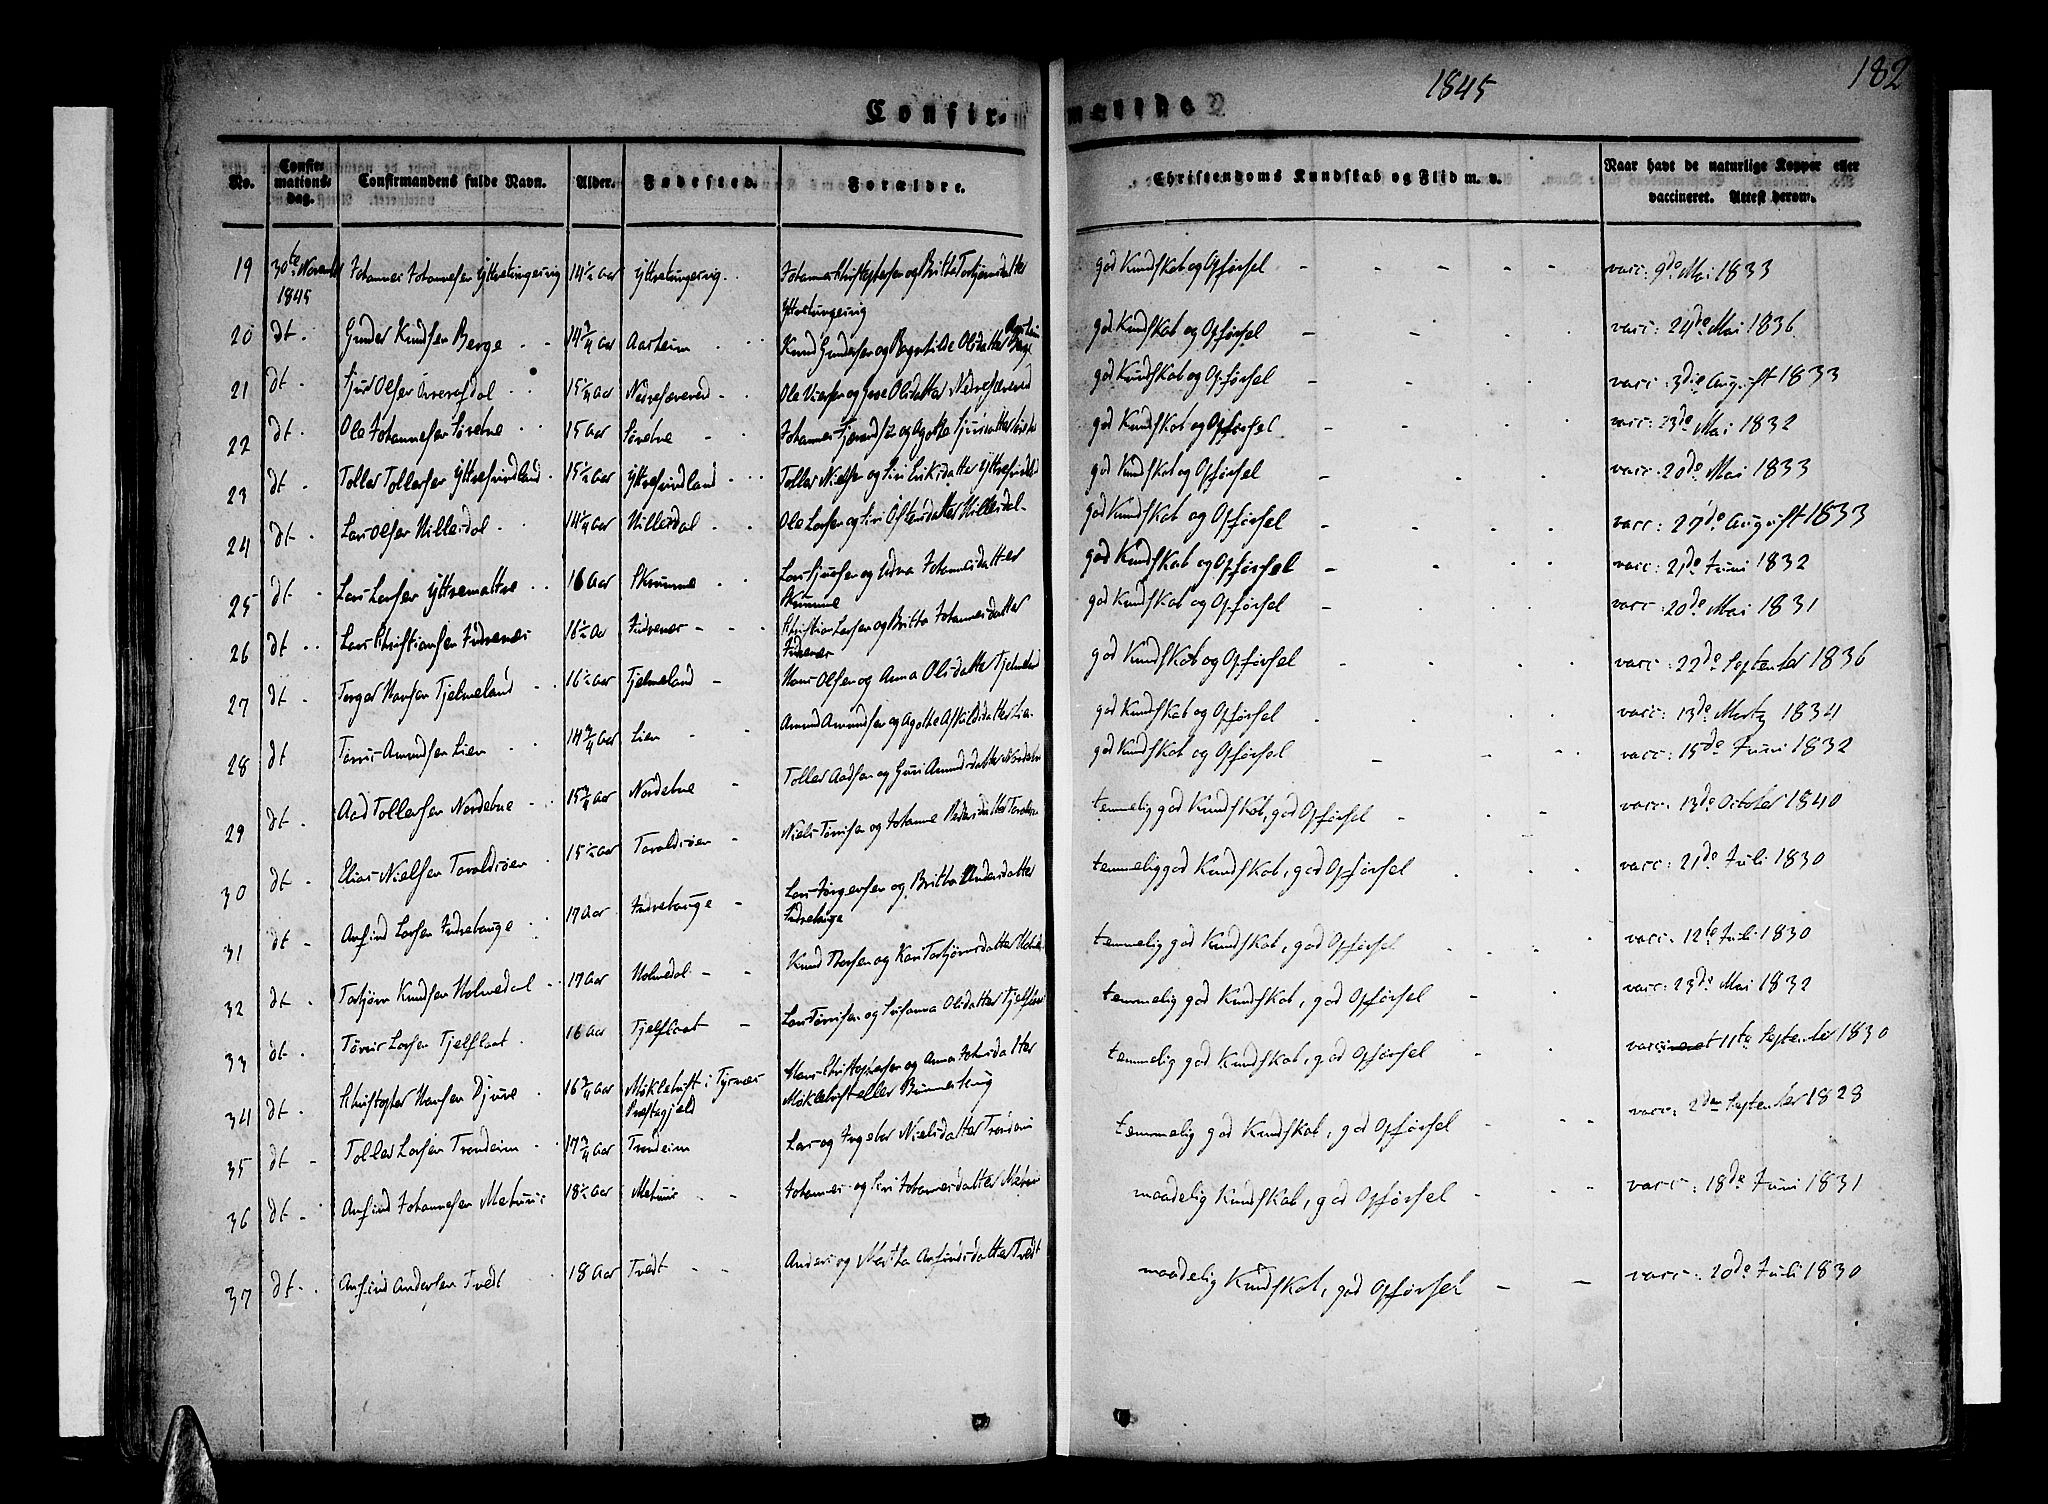 1845
182
Confirmerede
No. Confirmationsdag. Confirmandens fulde Navn. Alder. Fødested. Forældre. Christendoms Kundskab og Flid m. v. Naar havt de naturlige Kopper eller vaccineret. Attest herom.
19 30te November 1845 Johannes Johannesen Yttretungesvig 14 1/2 Aar Yttretungesvig Johannes Christophersen og Britta Torbjørnsdatter Yttretungesvig god Kundskab og Opførsel vacc: 9de Mai 1833
20 dt. Gunder Knudsen Berge 14 3/4 Aar Aarheim Knud Gundersen og Olsdatter god Kundskab og Opførsel vacc: 24de Mai 1836
21 dt. Sjur Olsen 15 1/4 Aar Ole og Olsdatter god Kundskab og Opførsel vacc: 3die August 1833
22 dt. Ole Johannesen Sørebne 15 Aar Sørebne Johannes og Agatte Sjursdatter god Kundskab og Opførsel vacc: 23de Mai 1832
23 dt. Tollev Tollevsen Yttresvindland 15 1/2 Aar Yttresvindland Tollev Nielsen og Siri Eriksdatter god Kundskab og Opførsel vacc: 20de Mai 1833
24 dt. Lars Olsen Hillesdal 14 1/4 Aar Hillesdal Ole Larsen og Siri Hillesdal god Kundskab og Opførsel vacc: 27de August 1833
25 dt. Lars Larsen Yttremattre 16 Aar Skrumme Lars Sjursen og Johannesdatter Skrumme god Kundskab og Opførsel vacc: 21de Juni 1832
26 dt. Lars Christiansen Indrenæs 16 1/2 Aar Indrenæs Christian Larsen og Britta Johannesdatter Indrenæs god Kundskab og Opførsel vacc: 20de Mai 1831
27 dt. Torger Hansen Tjelmeland 16 1/2 Aar Tjelmeland Hans Olsen og Anna Olsdatter Tjelmeland god Kundskab og Opførsel vacc: 22de September 1836
28 dt Tørris Amundsen Lien 14 3/4 Aar Lien Amund Amundsen og Agatte god Kundskab og Opførsel vacc: 13de Martz 1834
29 dt. Aad Tollevsen Nordebne 15 3/4 Aar Nordebne Tollev Aadsen og Guri Amundsdatter god Kundskab og Opførsel vacc: 15de Juni 1832
30 dt. Elias Nielsen Taraldsøen 15 1/2 Aar Taraldsøen Niels Tørrisen og Johanne Pedersdatter temmelig god Kundskab, god Opførsel vacc: 13de October 1840
31 dt. Anfind Larsen Indrehauge 17 Aar Indrehauge Lars Jørgensen og Britta Andersdatter Indrehauge temmelig god Kundskab, god Opførsel vacc: 21de Juli 1830
32 dt. Torbjørn Knudsen Holmedal 17 Aar Holmedal Knud Thorsen og Kari Torbjørnsdatter temmelig god Kundskab, god Opførsel vacc: 12te Juli 1830
33 dt. Tørris Larsen Tjelflaat 16 Aar Tjelflaat Lars Tørrisen og Susanna Olsdatter temmelig god Kundskab, god Opførsel vacc: 23de Mai 1832
34 dt. Christopher Hansen Djuve 16 3/4 Aar Møkletuft i Tysnæs Præstegjeld Hans Christophersen og Anna Johnsdatter Møkletuft eller temmelig god Kundskab, god Opførsel vaccineret 11te September 1830
35 dt. Tollev Larsen Trondeim 17 3/4 Aar Trondeim Lars og Ingebor Nielsdatter Trondeim temmelig god Kundskab, god Opførsel vacc: 2den September 1828
36 dt. Anfind Johannesen Mehuus 18 1/2 Aar Mehuus Johannes og Siri Johannesdatter Mehuus maadelig Kundskab, god Opførsel vacc: 18de Juni 1831
37 dt. Anfind Andersen Tvedt 18 Aar Tvedt Anders og Martha Anfindsdatter Tvedt maadelig Kundskab, god Opførsel vacc: 20de Juli 1830